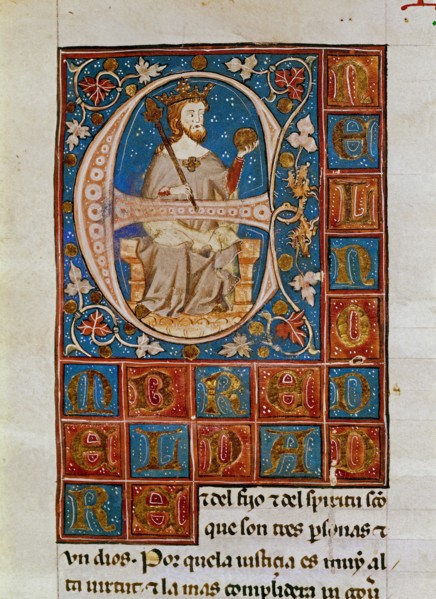 EN
E
L
N
O
MBRED
ELPAD
RE ⁊ del fijo ⁊ del spiritu sc̄o
que son tres ꝑsonas ⁊
vn dios. Por quela iusticia es muy al
ta uirtut. ⁊ la mas complidera